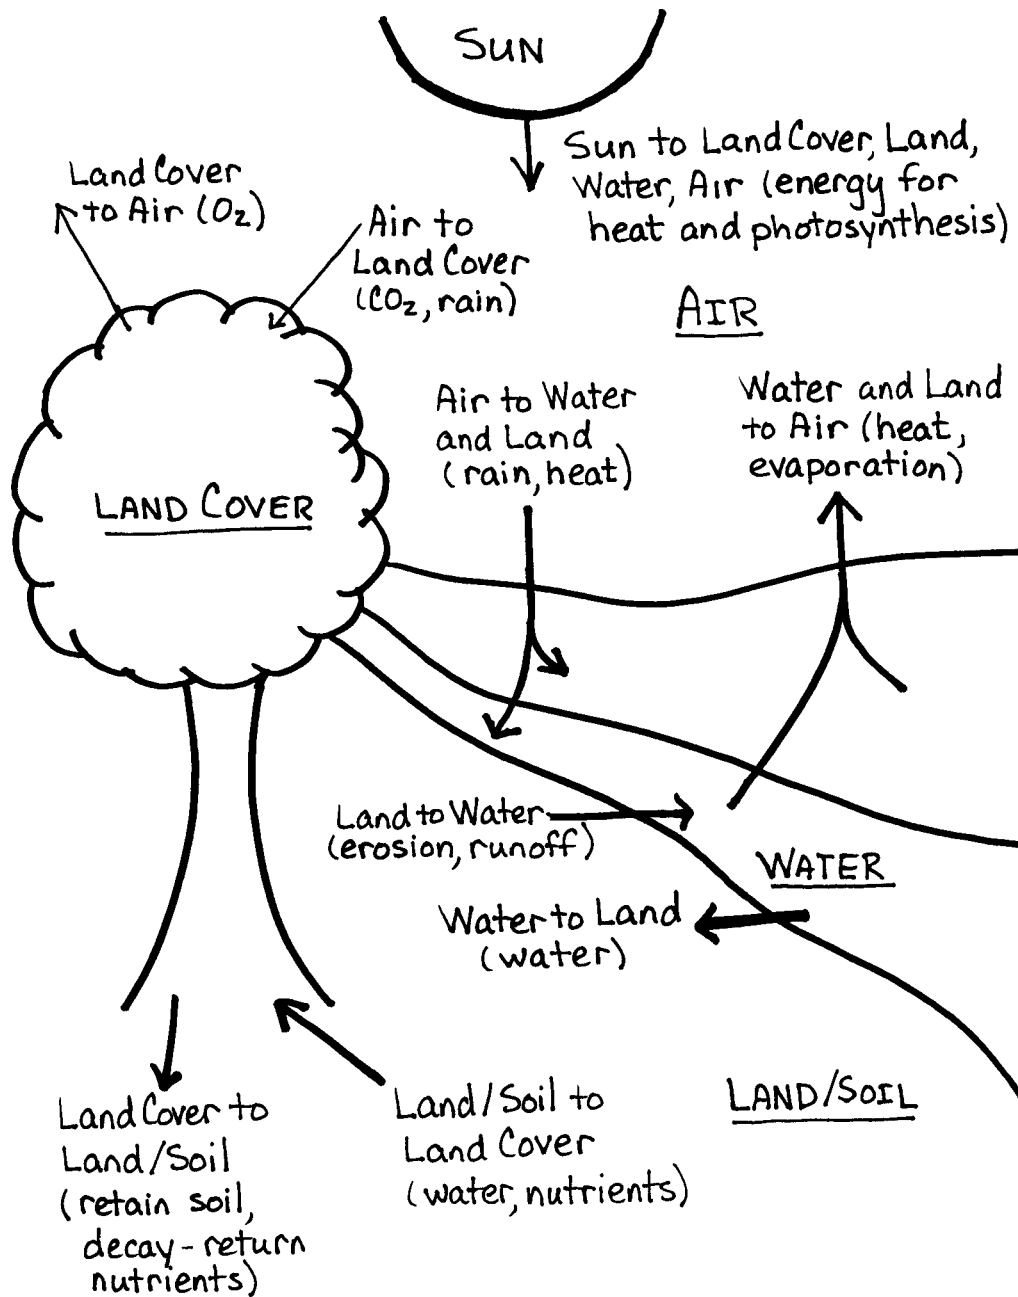 SUN
Sun to Land Cover, Land,
Water, Air (energy for
heat and photosynthesis)
Land Cover
to Air (O₂)
Air to
Land Cover
(CO₂, rain)
AIR
Air to Water
and Land
(rain, heat)
Water and Land
to Air (heat,
evaporation)
LAND COVER
Land to Water
(erosion, runoff)
WATER
Water to Land
(water)
Land Cover to
Land/Soil
(retain soil,
decay - return
nutrients)
Land/Soil to
Land Cover
(water, nutrients)
LAND/SOIL